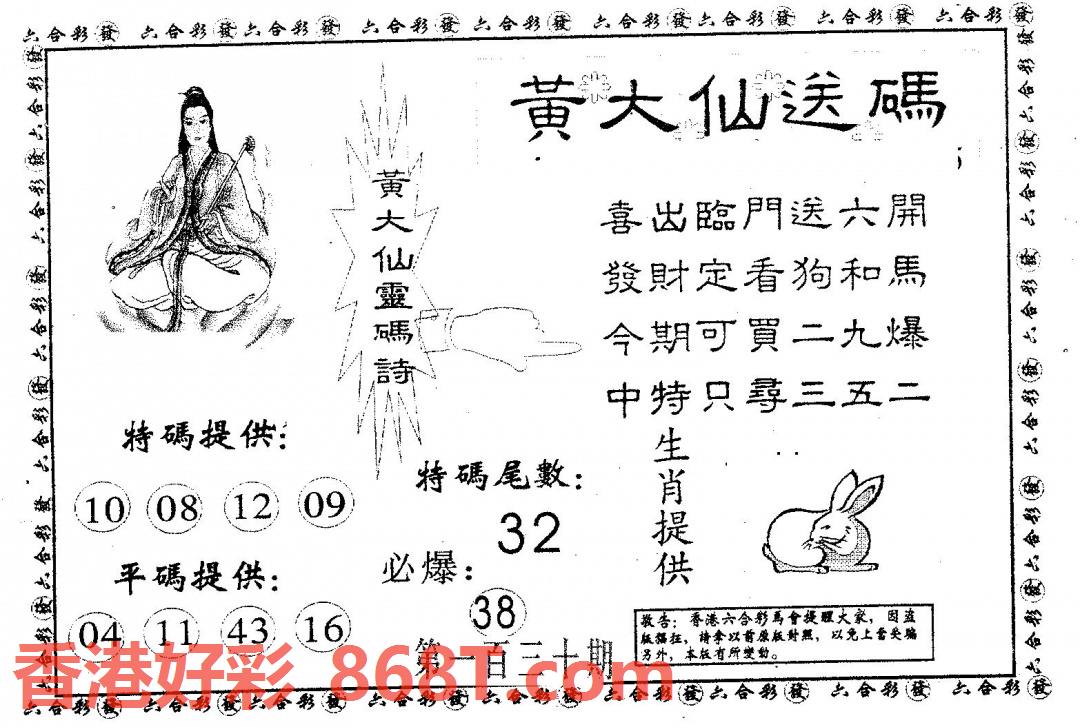 六合彩發 六合彩發六合彩發 六合彩發 六合彩發 六合彩發六合彩發 六合彩發 六合彩發
黃大仙送碼
黃大仙靈碼詩
喜出臨門送六開
發財定看狗和馬
今期可買二九爆
中特只尋三五二
特碼提供:
10 08 12 09
平碼提供:
04 11 43 16
特碼尾數:
32
必爆:
38
第一百三十期
生肖提供
敬告:香港六合彩馬會提醒大家,因盜
版猖狂,請拿以前原版對照,以免上當受騙
另外,本版有所變動。
香港好彩 868T.com
六合彩發 六合彩發六合彩發 六合彩發 六合彩發 六合彩發六合彩發 六合彩發 六合彩發